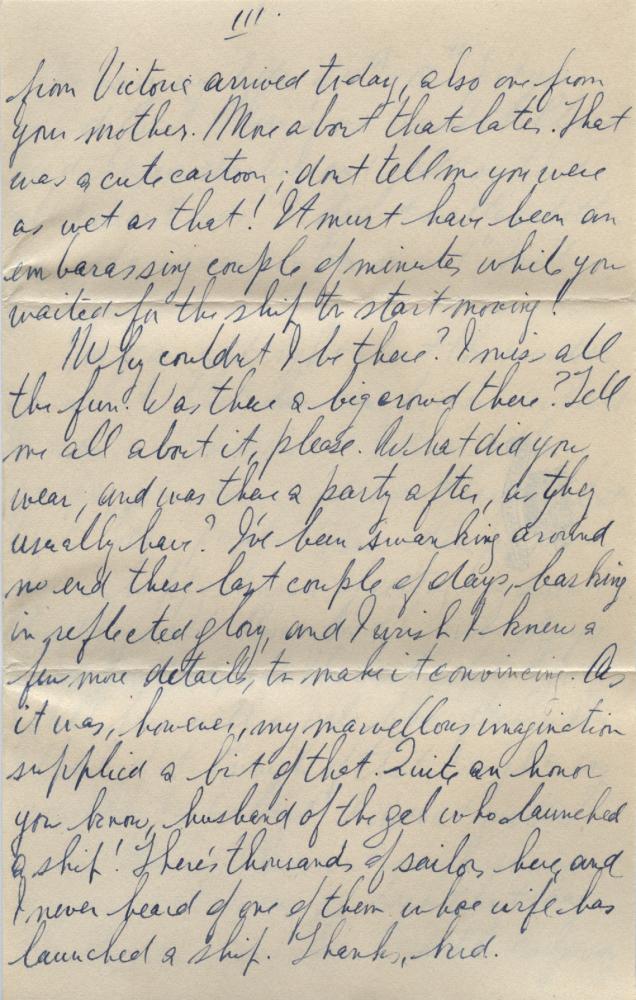 III.
from Victoria arrived today, also one from
your mother. More about that later. That
was a cute cartoon; dont tell me you were
as wet as that! It must have been an
embarassing couple of minutes while you
waited for the ship to start moving!
Why couldnt I be there? I miss all
the fun. Was there a big crowd there? Tell
me all about it, please. What did you
wear, and was there a party after, as they
usually have? I've been swanking around
no end these last couple of days, basking
in reflected glory, and I wish I knew a
few more details, to make it convincing. As
it was, however, my marvellous imagination
supplied a bit of that. Quite an honor
you know, husband of the gal who launched
a ship! There's thousands of sailors here, and
I never heard of one of them whose wife has
launched a ship. Thanks, bud.